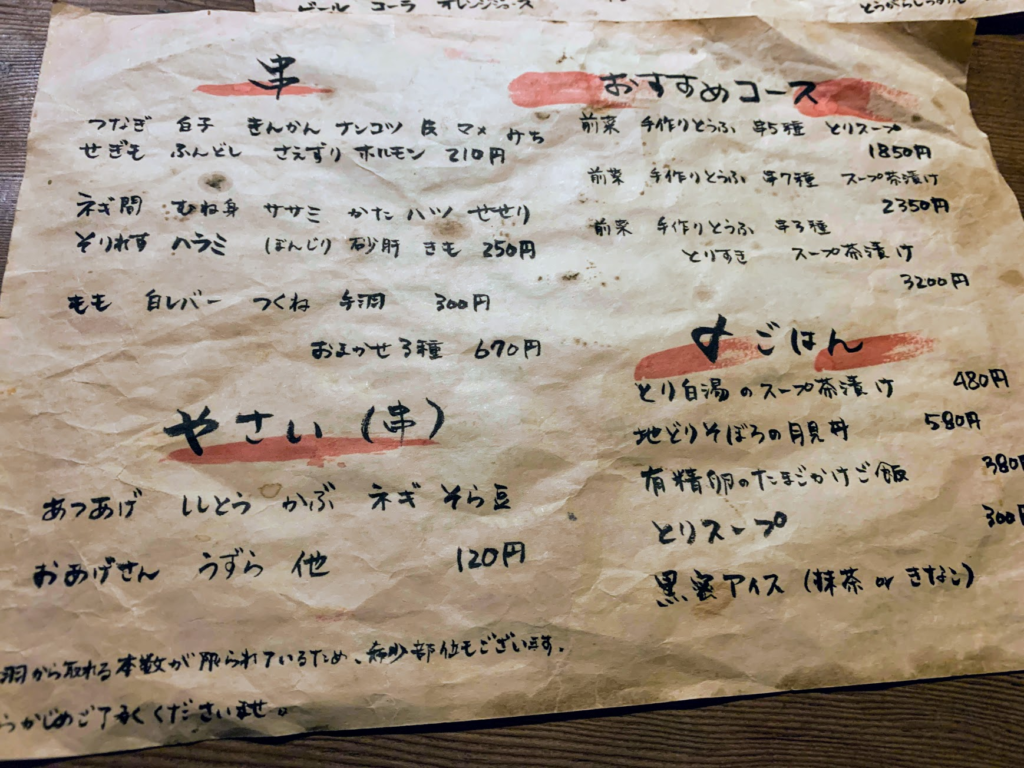 ビール コーラ オレンジジュース
串
つなぎ 白子 きんかん ナンコツ 皮 マメ みち
せぎも ふんどし さえずり ホルモン 210円
ネギ間 むね身 ササミ かた ハツ せせり
そりれす ハラミ ぼんじり 砂肝 きも 250円
もも 白レバー つくね 手羽 300円
おまかせ3種 670円
やさい(串)
あつあげ ししとう かぶ ネギ そら豆
おあげさん うずら 他 120円
羽から取れる本数が限られているため、希少部位もございます。
らかじめご了承くださいませ。
おすすめコース
前菜 手作りとうふ 串5種 とりスープ
1850円
前菜 手作りとうふ 串7種 スープ茶漬け
2350円
前菜 手作りとうふ 串3種
とりすき スープ茶漬け
3200円
〆ごはん
とり白湯のスープ茶漬け 480円
地どりそぼろの月見丼 580円
有精卵のたまごかけご飯 380円
とりスープ 300円
黒蜜アイス (抹茶 or きなこ)